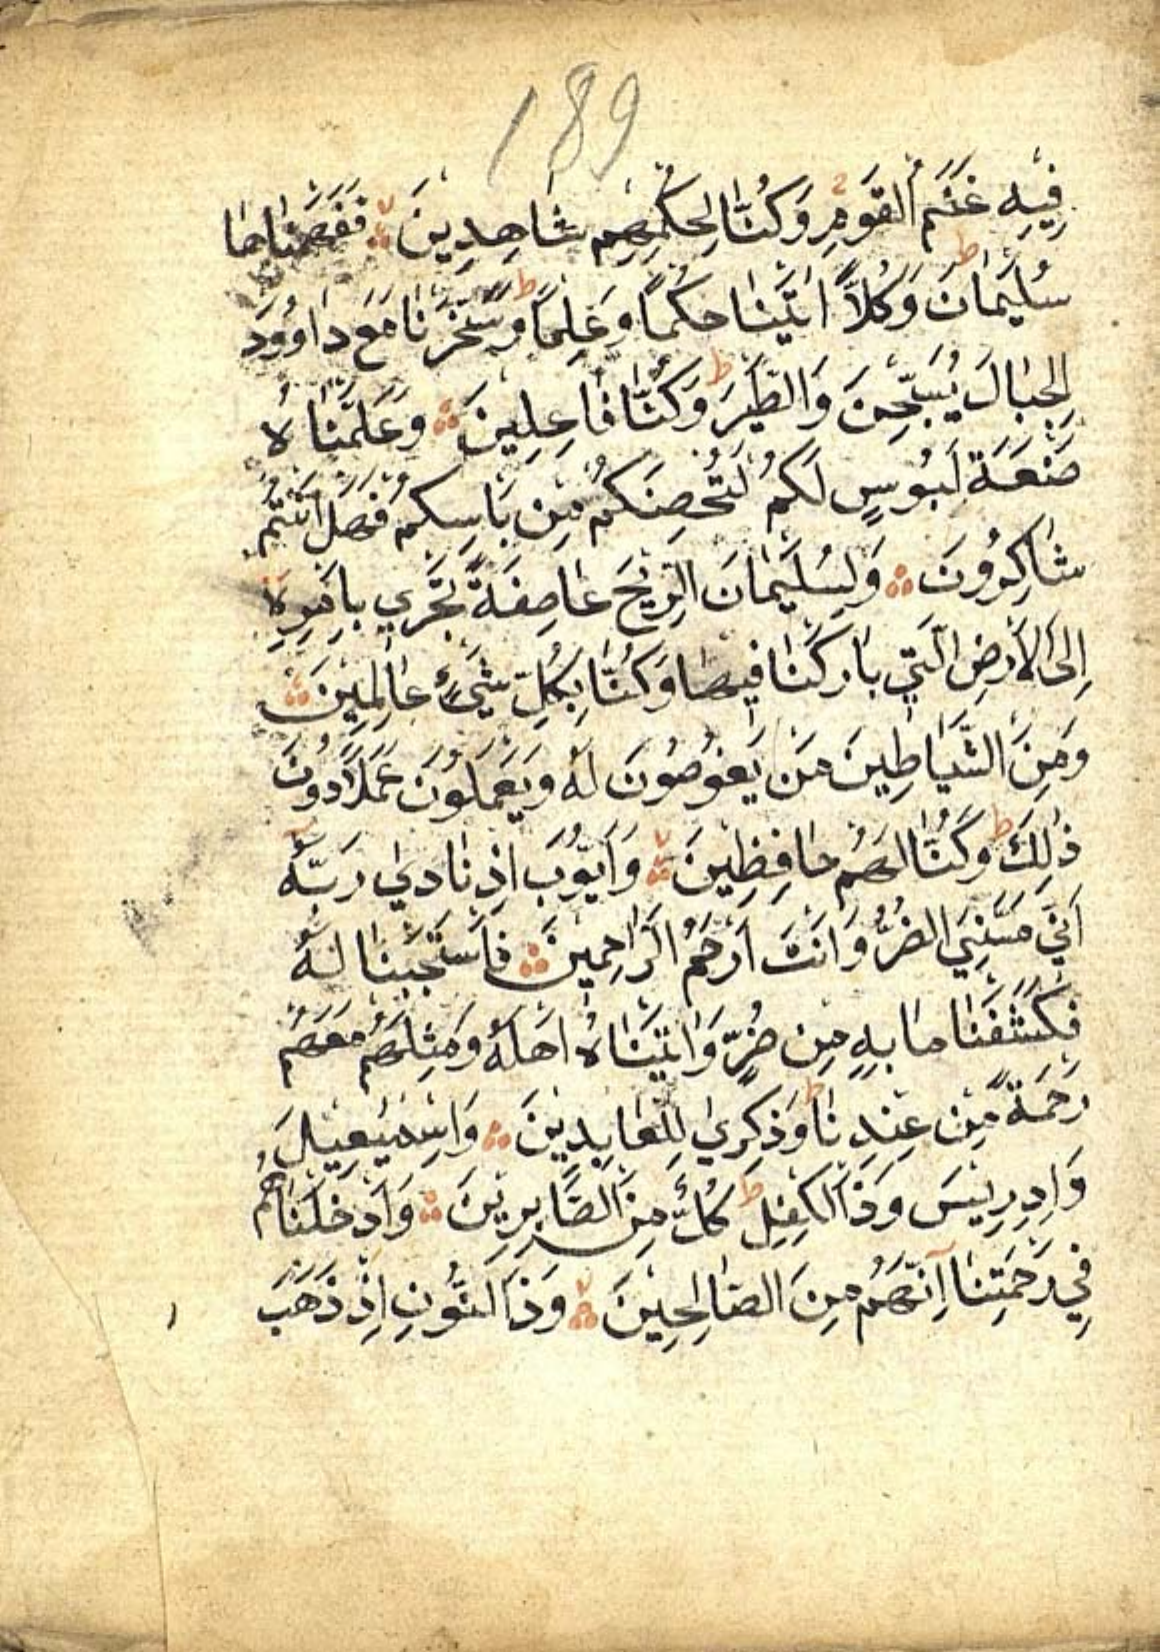 189
فِيهِ غَنَمُ القَومِ وَكُنَّا لِحُكمِهِم شَاهِدِينَ ۞ فَفَهَّمنَاهَا
سُلَيمَانَ ط وَكُلًّا اتَينَا حُكمًا وَعِلمًا ط وَسَخَّرنَا مَعَ دَاوُودَ
الجِبَالَ يُسَبِّحنَ وَالطَّيرَ ط وَكُنَّا فَاعِلِينَ ۞ وَعَلَّمنَاهُ
صَنعَةَ لَبُوسٍ لَكُم لِتُحصِنَكُم مِن بَاسِكُم فَهَل انتُم
شَاكِرُونَ ۞ وَلِسُلَيمَانَ الرِّيحَ عَاصِفَةً تَجرِي بِامرِهِ
اِلَى الاَرضِ الَّتِي بَارَكنَا فِيهَا وَكُنَّا بِكُلِّ شَيءٍ عَالِمِينَ ۞
وَمِنَ الشَّيَاطِينَ مَن يَغُوصُونَ لَهُ وَيَعمَلُونَ عَمَلًا دُونَ
ذٰلِكَ ط وَكُنَّا لَهُم حَافِظِينَ ۞ وَاَيُّوبَ اِذ نَادَي رَبَّهُ
اَنِّي مَسَّنِيَ الضُّرُّ وَانتَ اَرحَمُ الرَّاحِمِينَ ۞ فَاستَجَبنَا لَهُ
فَكَشَفنَا مَا بِهِ مِن ضُرٍّ وَاتَينَاهُ اهلَهُ وَمِثلَهُم مَعَهُم
رَحمَةً مِن عِندِنَا ط وَذِكرَي لِلعَابِدِينَ ۞ وَاِسمٰعِيلَ
وَاِدرِيسَ وَذَا الكِفلِ ط كُلٌّ مِنَ الصَّابِرِينَ ۞ وَاَدخَلنَاهُم
فِي رَحمَتِنَا اِنَّهُم مِنَ الصَّالِحِينَ ۞ وَذَا النُّونِ اِذ ذَهَبَ